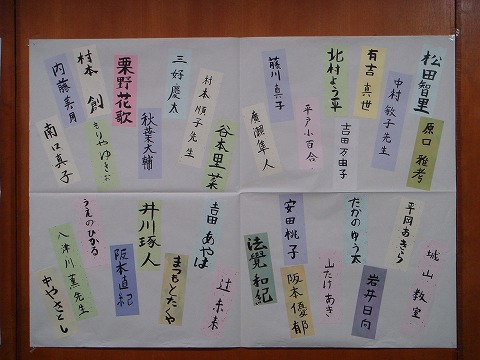 松田智里
原口雅考
中村敏子先生
有吉真世
吉田万由子
北村よう平
平戸小百合
藤川真子
廣瀬隼人
谷本里菜
村本順子先生
三好慶太
秋葉大輔
栗野花歌
もりやゆきお
村本創
南口真子
内藤美月
城山教室
平岡あきら
岩井日向
たかのゆう太
山たけあき
安田桃子
阪本優郁
法覺和紀
辻未来
吉田あやは
まつもとたくや
井川琢人
阪本直紀
うえのひかる
八津川薫先生
中やさとし